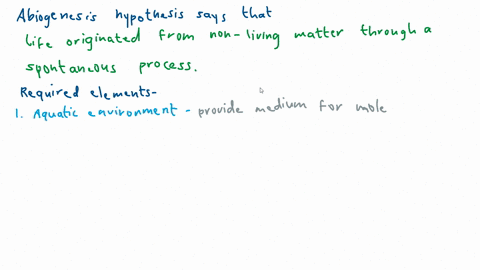 Abiogenesis hypothesis says that
life originated from non-living matter through a
spontaneous process.
Required elements-
1. Aquatic environment - provide medium for mole